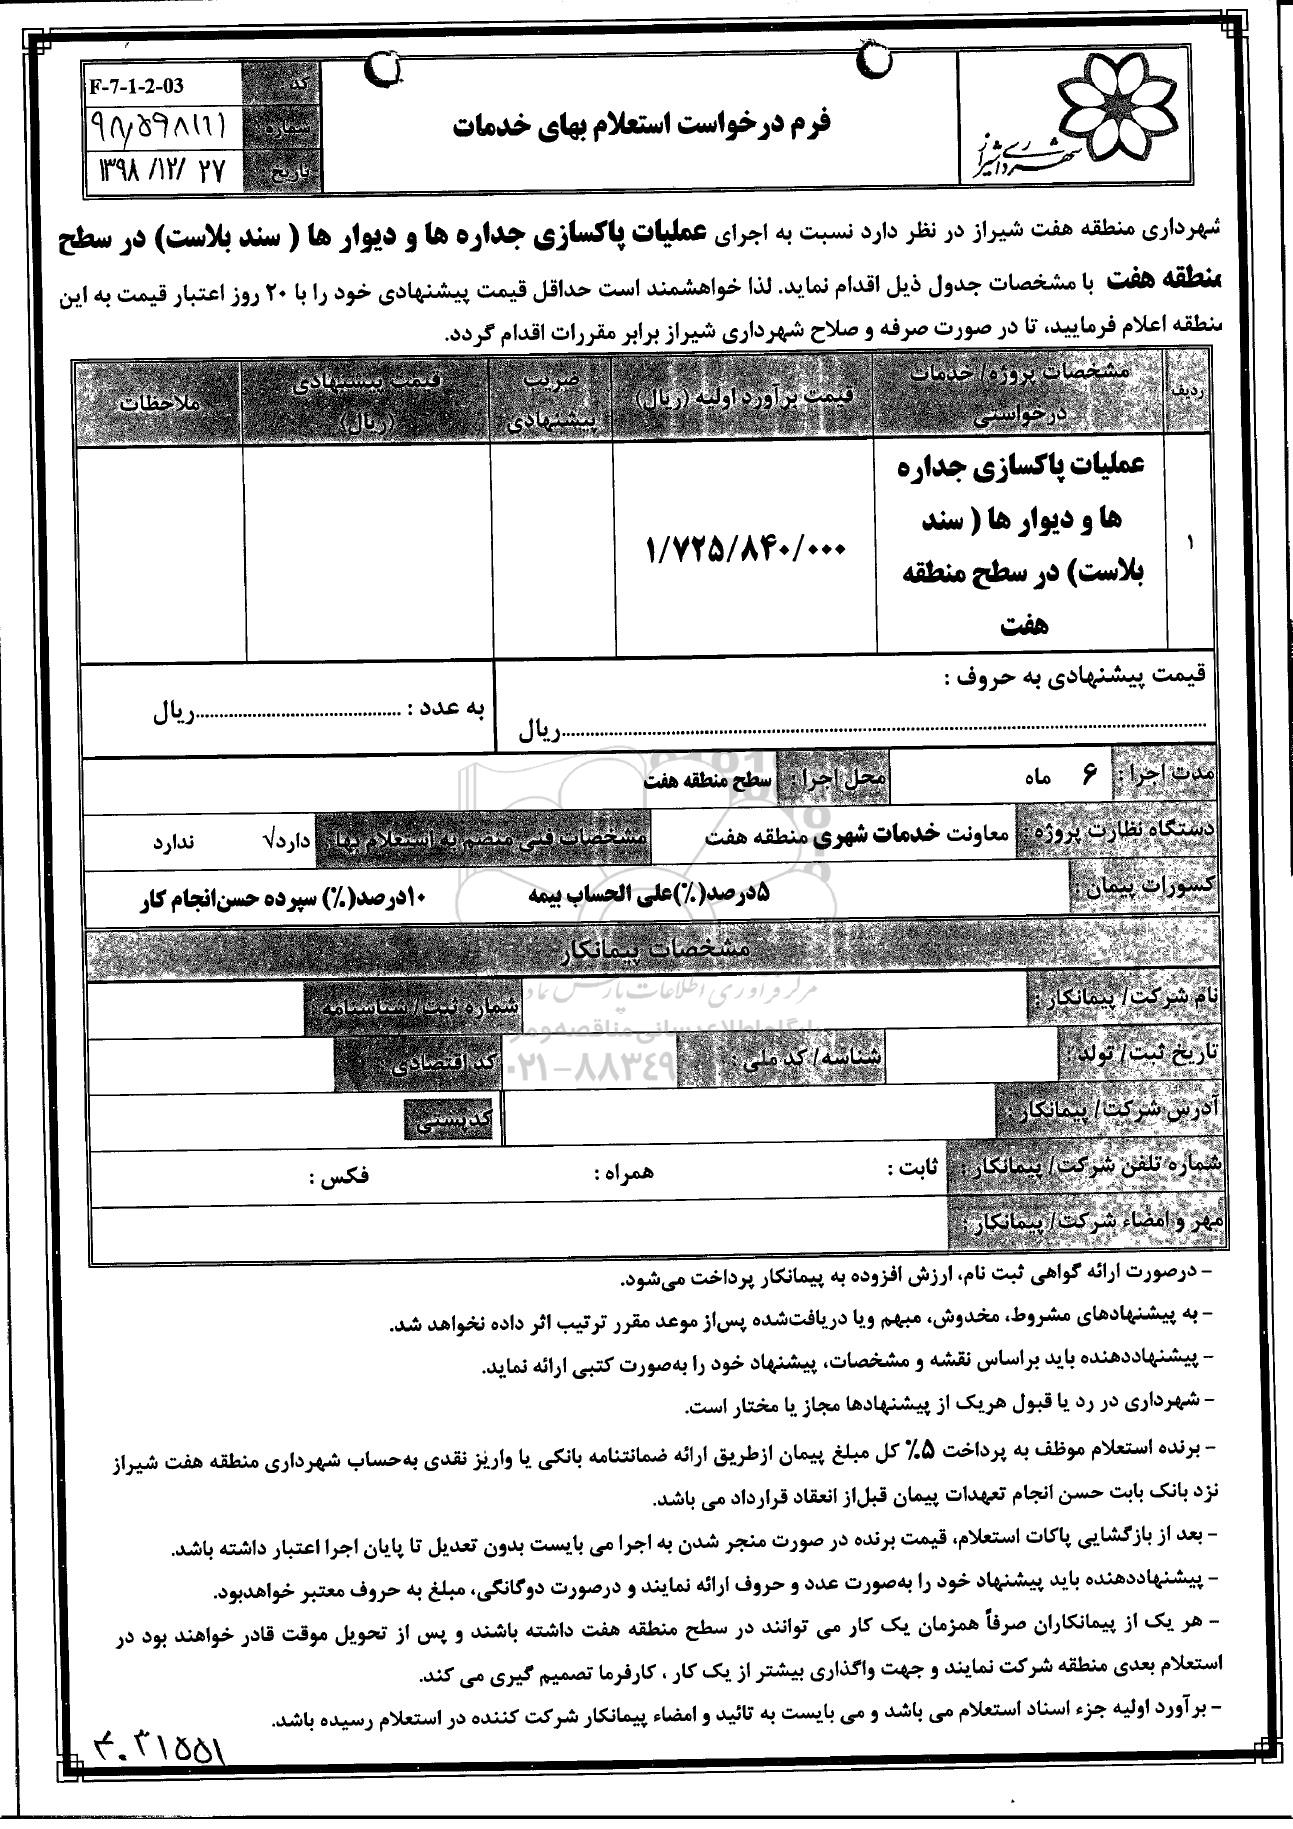 شهرداری شیراز
فرم درخواست استعلام بهای خدمات
کد F-7-1-2-03
شماره: ۹۸/۵۹۸۱۱۱
تاریخ: ۱۳۹۸/۱۲/۲۷
شهرداری منطقه هفت شیراز در نظر دارد نسبت به اجرای عملیات پاکسازی جداره ها و دیوار ها ( سند بلاست) در سطح
منطقه هفت با مشخصات جدول ذیل اقدام نماید. لذا خواهشمند است حداقل قیمت پیشنهادی خود را با ۲۰ روز اعتبار قیمت به این
منطقه اعلام فرمایید، تا در صورت صرفه و صلاح شهرداری شیراز برابر مقررات اقدام گردد.
ردیف
مشخصات پروژه/ خدمات
درخواستی
قیمت برآورد اولیه (ریال)
ضریب
پیشنهادی
قیمت پیشنهادی
(ریال)
ملاحظات
۱
عملیات پاکسازی جداره
ها و دیوار ها ( سند
بلاست) در سطح منطقه
هفت
۱/۷۲۵/۸۴۰/۰۰۰
قیمت پیشنهادی به حروف :
..........ریال
به عدد : ..........ریال
مدت اجرا : ۶ ماه
محل اجرا : سطح منطقه هفت
دستگاه نظارت پروژه: معاونت خدمات شهری منطقه هفت
مشخصات فنی منضم به استعلام بها: دارد√ ندارد
کسورات پیمان : ۵درصد(%)علی الحساب بیمه ۱۰درصد(%) سپرده حسن‌انجام کار
مشخصات پیمانکار
نام شرکت/ پیمانکار :
شماره ثبت/ شناسنامه :
تاریخ ثبت/ تولد :
شناسه/ کد ملی :
کد اقتصادی :
آدرس شرکت/ پیمانکار :
کدپستی
شماره تلفن شرکت/ پیمانکار : ثابت : همراه : فکس :
مهر و امضاء شرکت/ پیمانکار :
۰۲۱-۸۸۳۴۹
- درصورت ارائه گواهی ثبت نام، ارزش افزوده به پیمانکار پرداخت می‌شود.
- به پیشنهادهای مشروط، مخدوش، مبهم ویا دریافت‌شده پس‌از موعد مقرر ترتیب اثر داده نخواهد شد.
- پیشنهاددهنده باید براساس نقشه و مشخصات، پیشنهاد خود را به‌صورت کتبی ارائه نماید.
- شهرداری در رد یا قبول هریک از پیشنهادها مجاز یا مختار است.
- برنده استعلام موظف به پرداخت ۵% کل مبلغ پیمان ازطریق ارائه ضمانتنامه بانکی یا واریز نقدی به‌حساب شهرداری منطقه هفت شیراز
نزد بانک بابت حسن انجام تعهدات پیمان قبل‌از انعقاد قرارداد می باشد.
- بعد از بازگشایی پاکات استعلام، قیمت برنده در صورت منجر شدن به اجرا می بایست بدون تعدیل تا پایان اجرا اعتبار داشته باشد.
- پیشنهاددهنده باید پیشنهاد خود را به‌صورت عدد و حروف ارائه نمایند و درصورت دوگانگی، مبلغ به حروف معتبر خواهدبود.
- هر یک از پیمانکاران صرفاً همزمان یک کار می توانند در سطح منطقه هفت داشته باشند و پس از تحویل موقت قادر خواهند بود در
استعلام بعدی منطقه شرکت نمایند و جهت واگذاری بیشتر از یک کار ، کارفرما تصمیم گیری می کند.
- برآورد اولیه جزء اسناد استعلام می باشد و می بایست به تائید و امضاء پیمانکار شرکت کننده در استعلام رسیده باشد.
۴۰۳۱۵۵۱